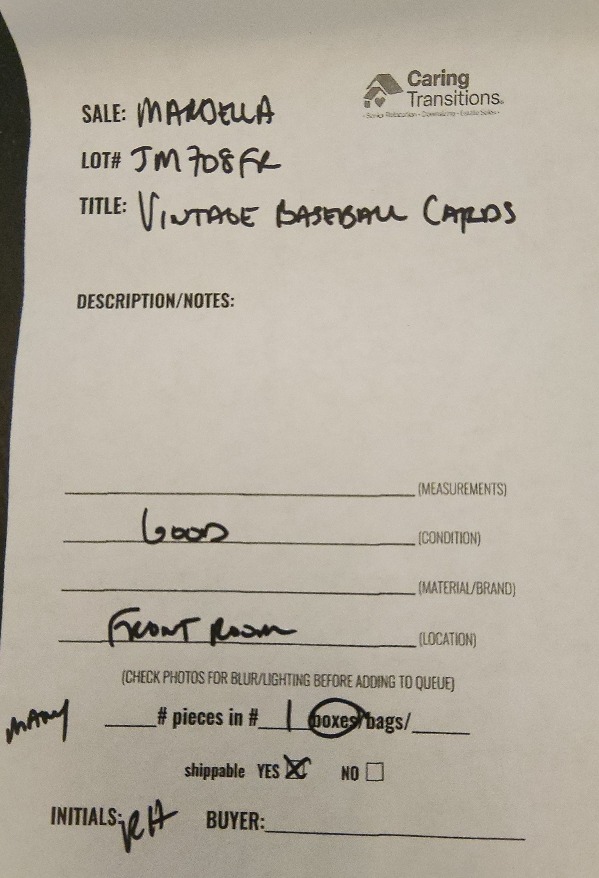 Caring
Transitions
Senior Relocation • Downsizing • Estate Sales
SALE: MARDELLA
LOT# JM708FR
TITLE: VINTAGE BASEBALL CARDS
DESCRIPTION/NOTES:
(MEASUREMENTS)
GOOD (CONDITION)
(MATERIAL/BRAND)
FRONT ROOM (LOCATION)
(CHECK PHOTOS FOR BLUR/LIGHTING BEFORE ADDING TO QUEUE)
MANY # pieces in # 1 boxes/bags/
shippable YES NO
INITIALS: RH BUYER: